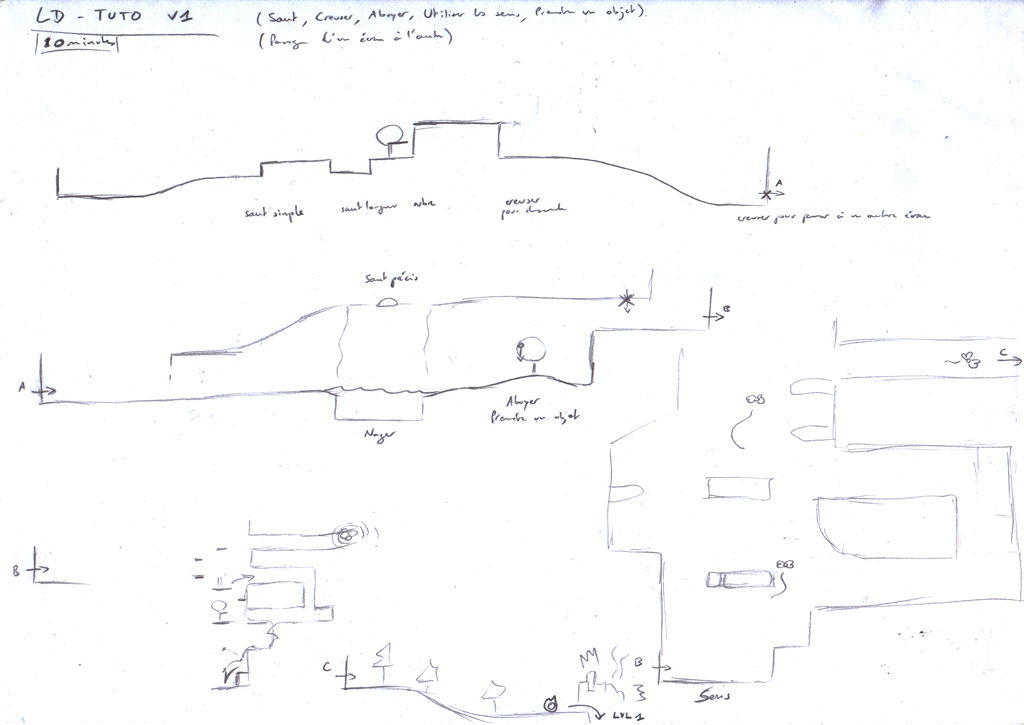 LD - TUTO V1 (Saut, Creuser, Aboyer, Utiliser les sens, Prendre un objet)
10 minutes (Passage d'un écran à l'autre)
A
saut simple saut longueur arbre creuser pour descendre creuser pour passer à un autre écran
Saut précis
B
A
C
Aboyer
Prendre un objet
Nager
B
C
B
Sens
LVL 1